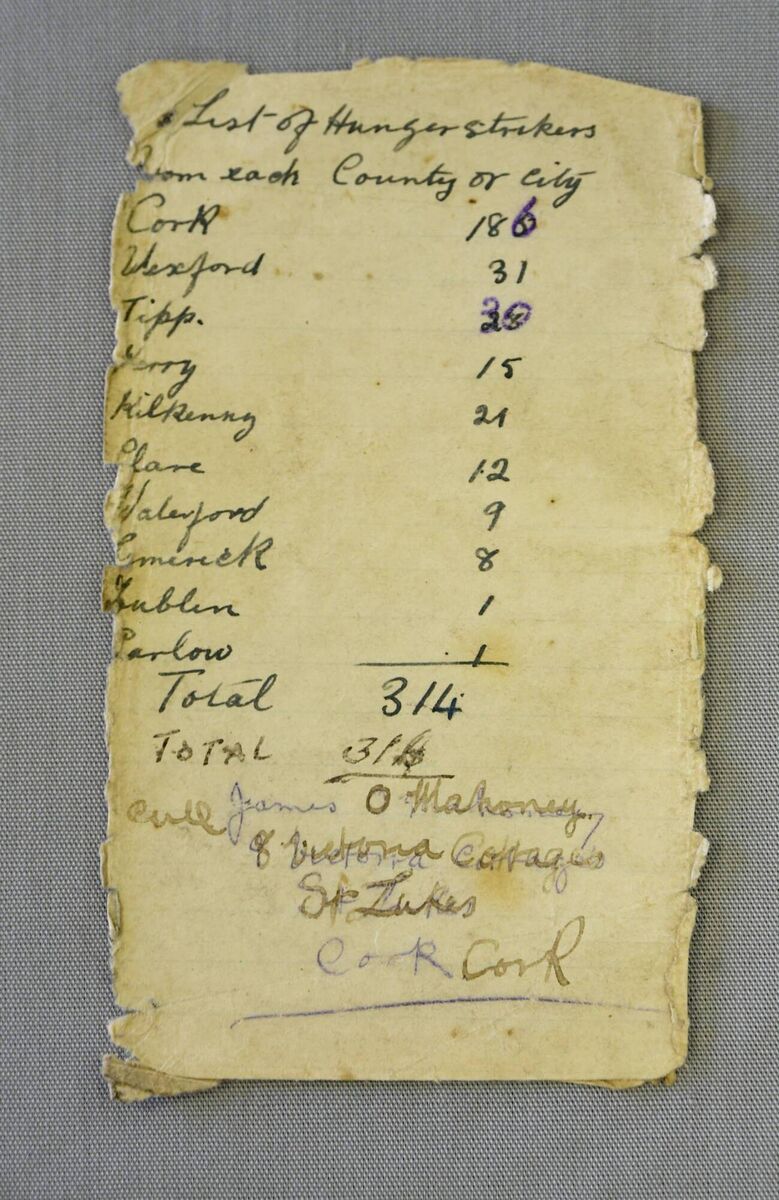 List of Hunger strikers
from each County or City
Cork 186
Wexford 31
Tipp. 30
Kerry 15
Kilkenny 21
Clare 12
Waterford 9
Limerick 8
Dublin 1
Carlow 1
Total 314
TOTAL 316
James O Mahoney
8 Victoria Cottages
St Lukes
Cork Cork